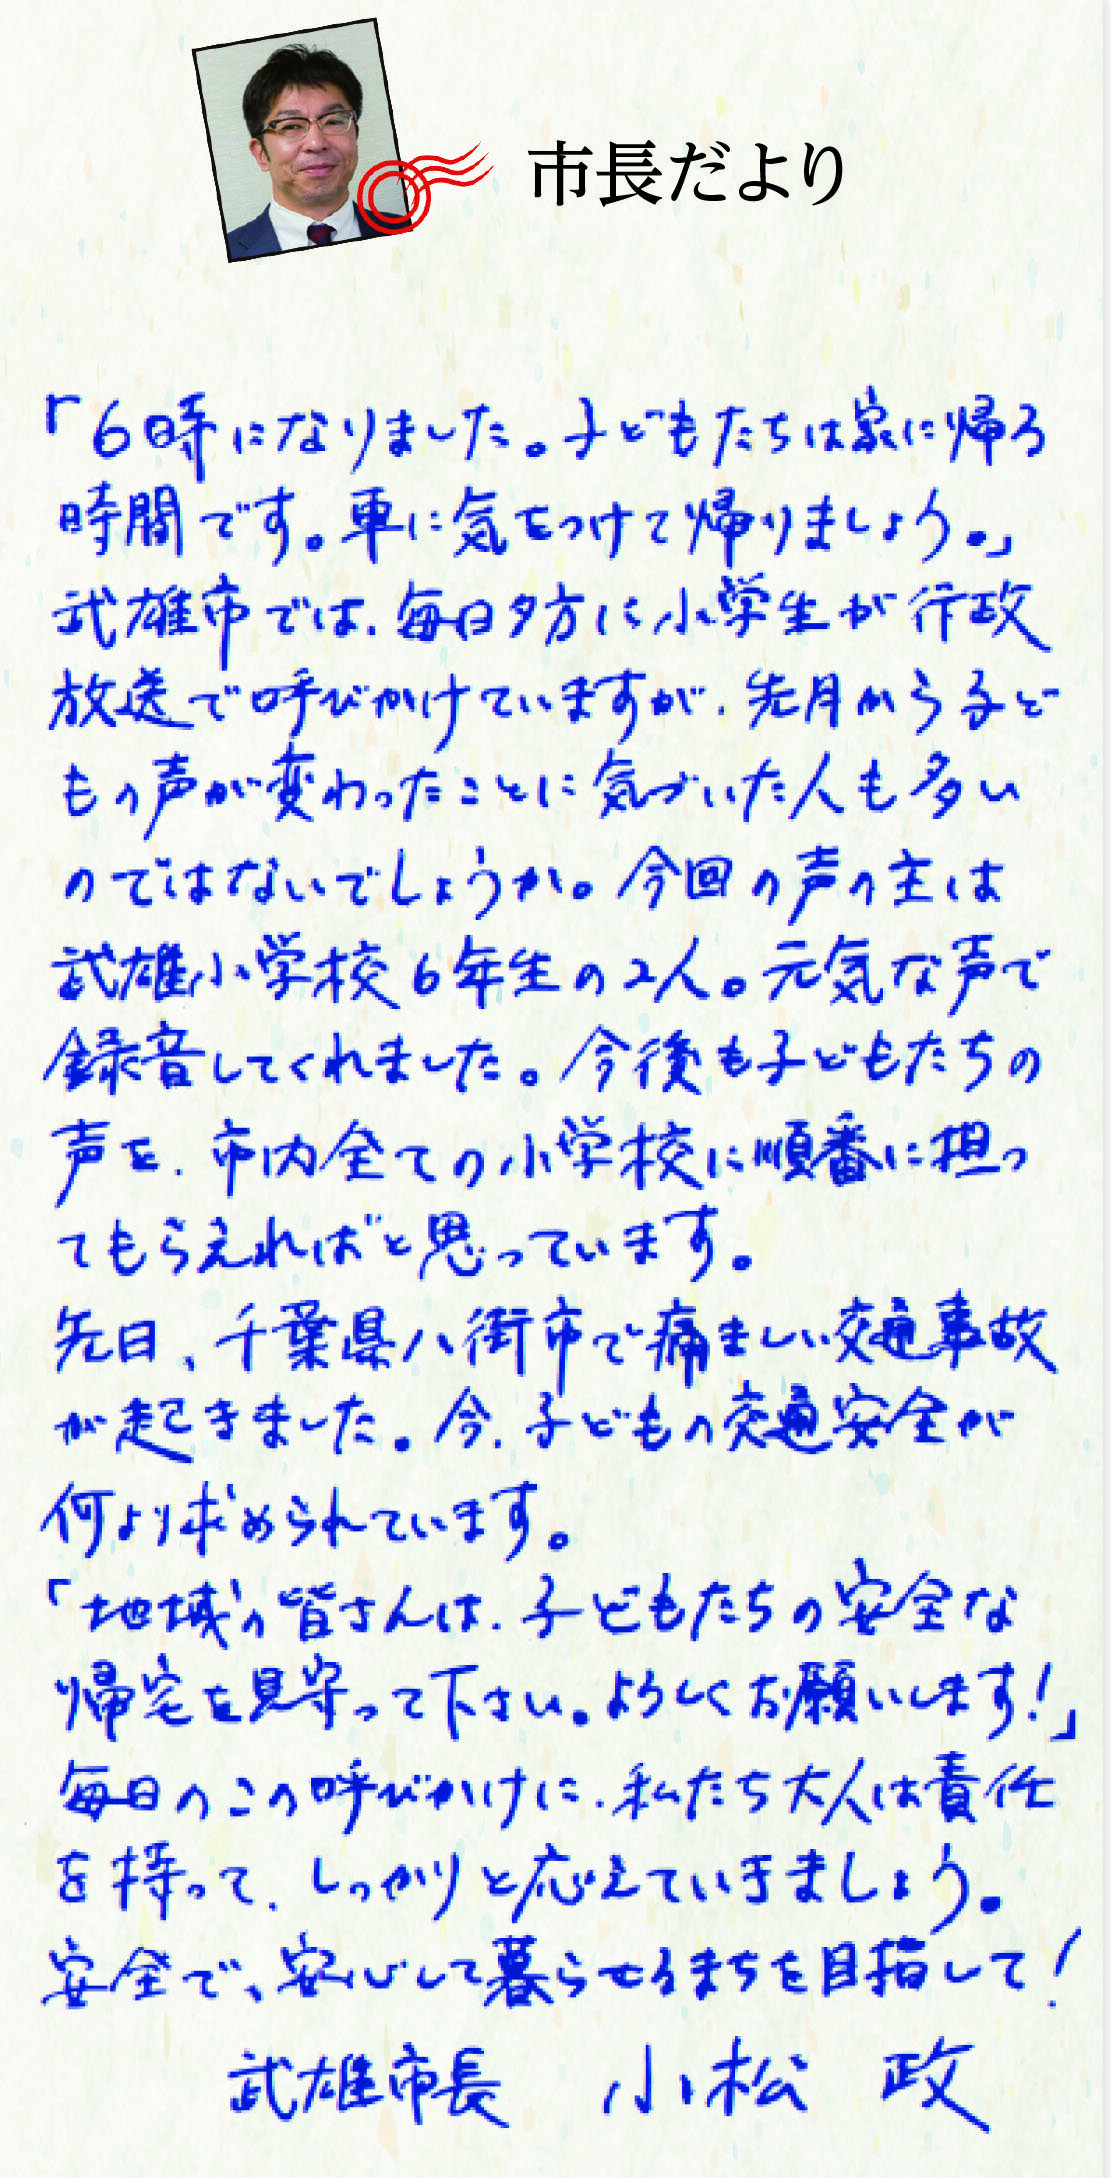 市長だより
「6時になりました。子どもたちは家に帰る
時間です。車に気をつけて帰りましょう。」
武雄市では、毎日夕方に小学生が行政
放送で呼びかけていますが、先月から子ど
もの声が変わったことに気づいた人も多い
のではないでしょうか。今回の声の主は
武雄小学校6年生の2人。元気な声で
録音してくれました。今後も子どもたちの
声を、市内全ての小学校に順番に担っ
てもらえればと思っています。
先日、千葉県八街市で痛ましい交通事故
が起きました。今、子どもの交通安全が
何より求められています。
「地域の皆さんは、子どもたちの安全な
帰宅を見守って下さい。よろしくお願いします!」
毎日のこの呼びかけに、私たち大人は責任
を持って、しっかりと応えていきましょう。
安全で、安心して暮らせるまちを目指して!
武雄市長 小松 政